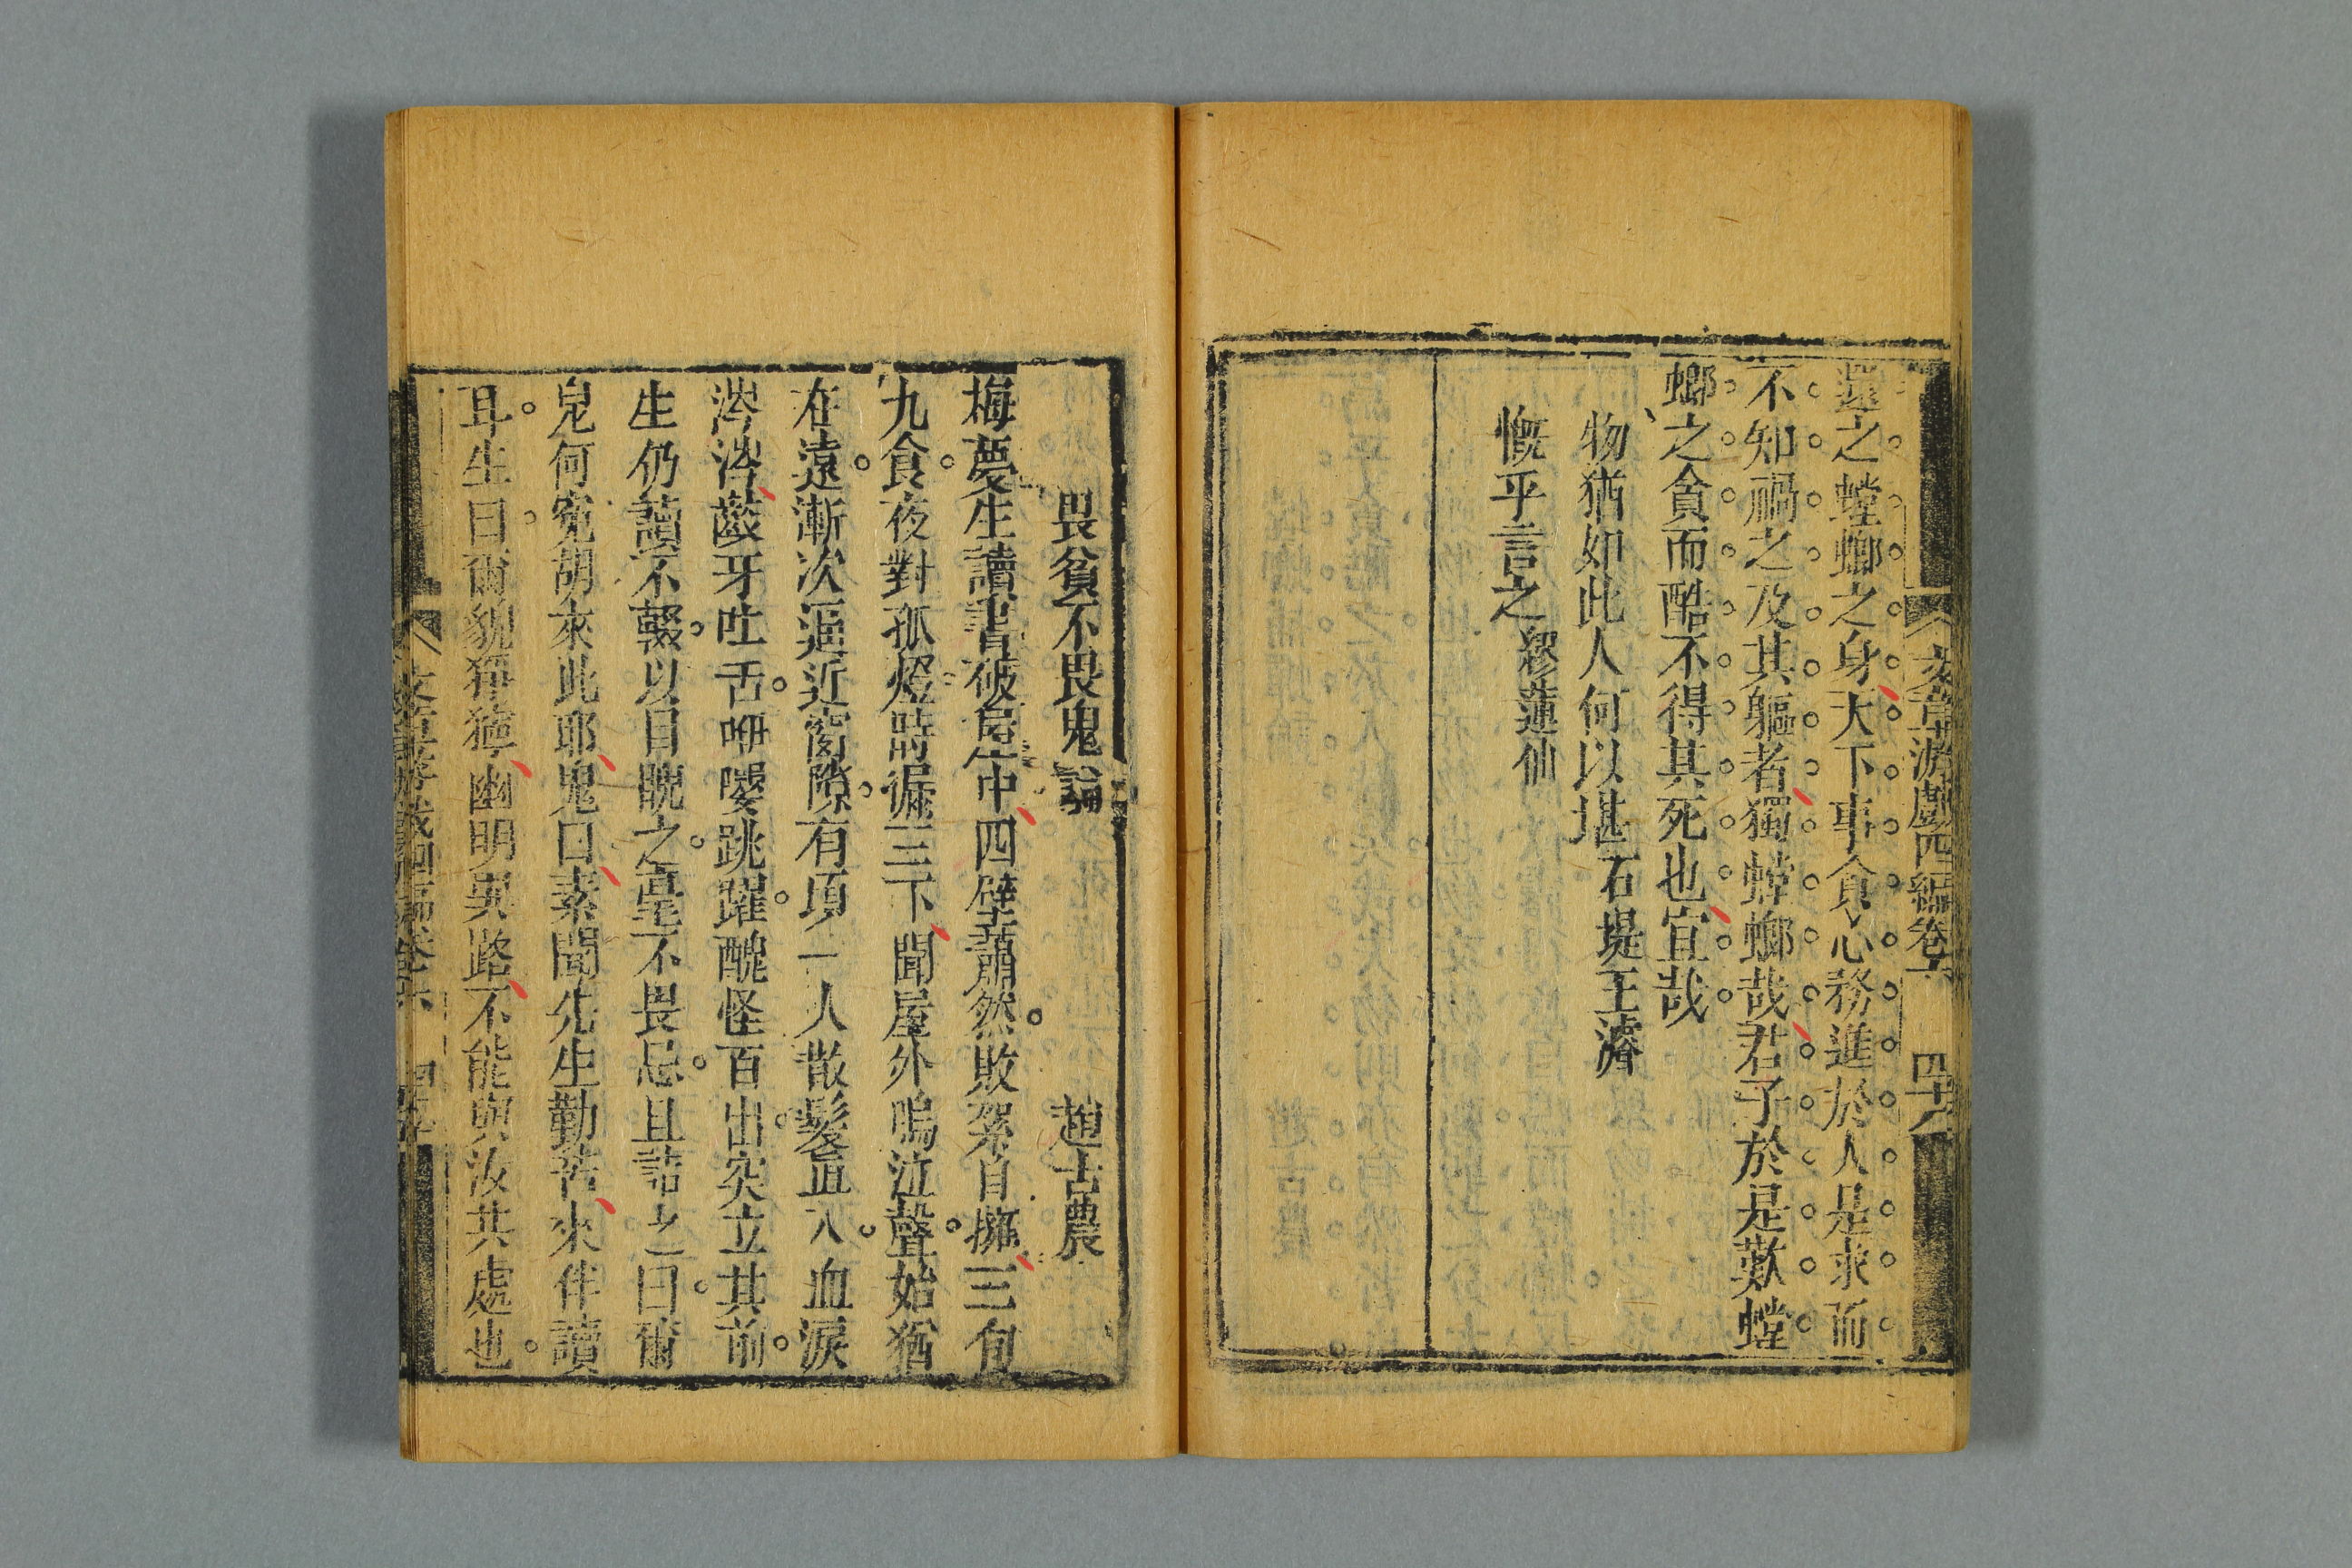 文章游戲四編卷六 四十六
還之螳螂之身天下事貪心務進於人是求而
不知禍之及其軀者獨螳螂哉君子於是歎螳
螂之貪而酷不得其死也宜哉
物猶如此人何以堪石堤王濬
慨乎言之繆蓮仙
畏貧不畏鬼論 趙古農
梅夢生讀書破屋中四壁蕭然敗絮自擁三旬
九食夜對孤燈時漏三下聞屋外嗚泣聲始猶
在遠漸次逼近窗隙有頃一人散髮直入血淚
涔涔齩牙吐舌咿嚘跳躍醜怪百出突立其前
生仍讀不輟以目睨之毫不畏忌且詰之曰爾
鬼何寃胡來此耶鬼曰素聞先生勤苦來伴讀
耳生曰爾貌猙獰幽明異路不能與汝共處也
文章游戲四編卷六